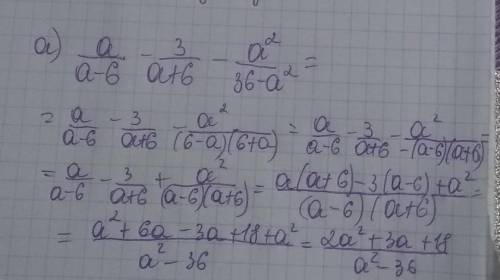 а) a/(a-6) - 3/(a+6) - a²/(36-a²) =
= a/(a-6) - 3/(a+6) - a²/((6-a)(6+a)) = a/(a-6) - 3/(a+6) - a²/(-(a-6)(a+6)) =
= a/(a-6) - 3/(a+6) + a²/((a-6)(a+6)) = (a(a+6)-3(a-6)+a²)/((a-6)(a+6)) =
= (a²+6a-3a+18+a²)/(a²-36) = (2a²+3a+18)/(a²-36)